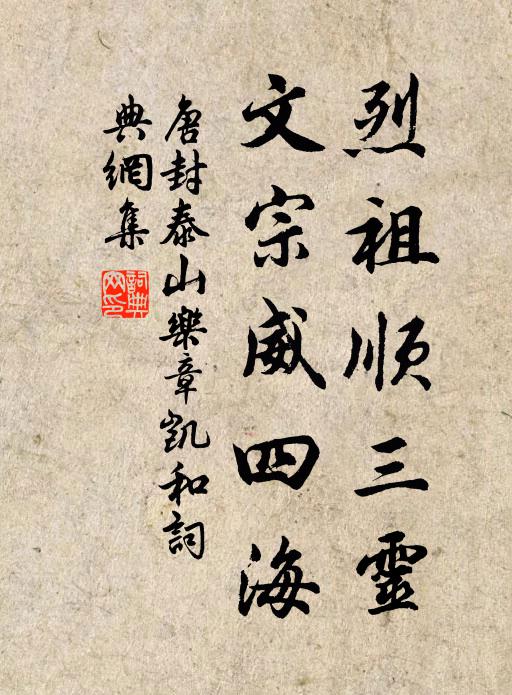 烈祖順三靈
文宗威四海
唐封泰山樂章凱和詞
典網集
詞典網印